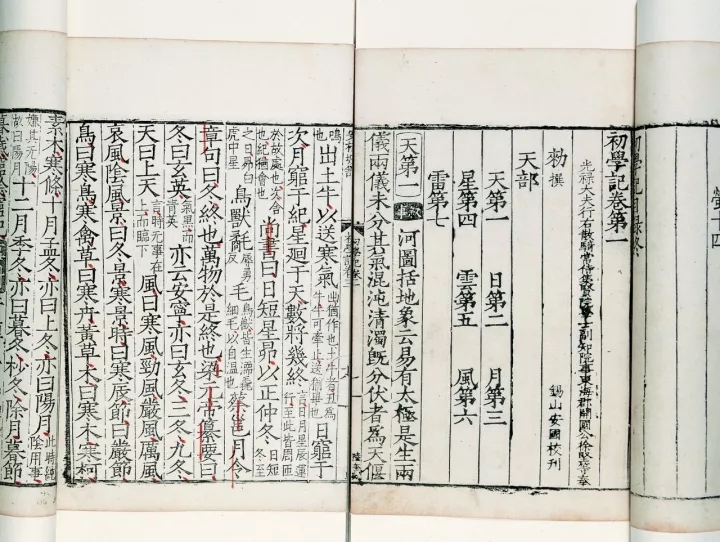 初學記目錄終
初學記卷第一
光祿大夫行右散騎常侍集賢院學士副知院事東海郡開國公徐堅等奉
勑撰 錫山安國校刊
天部
天第一 日第二 月第三
星第四 雲第五 風第六
雷第七
天第一 叙事 河圖括地象云易有太極是生兩
儀兩儀未分其氣混沌清濁旣分伏者爲天偃
鳴也 出土牛以送寒氣 出猶作也土牛者丑爲牛牛可牽止送猶畢也 日窮于
次月窮于紀星廻于天數將幾終 言日月星辰運行至此皆周匝
於故處也次舍也紀猶會也 尚書曰日短星昴以正仲冬 日短冬至
之日昴白虎中星 鳥獸氄毛 鳥獸皆生濡毳細毛以自温也 蔡邕月令
章句曰冬終也萬物於是終也梁元帝纂要曰
冬曰玄英 氣黑而青英 亦云安寧亦曰玄冬三冬九冬
天曰上天 言時無事在上而臨下 風曰寒風勁風嚴風厲風
哀風陰風景曰冬景寒景時曰寒辰節曰嚴節
鳥曰寒鳥寒禽草曰寒卉黃草木曰寒木寒柯
素木寒條十月孟冬亦曰上冬亦曰陽月 此時純陰用事
嫌其無陽故曰陽月 十二月季冬亦曰暮冬杪冬除月暮節